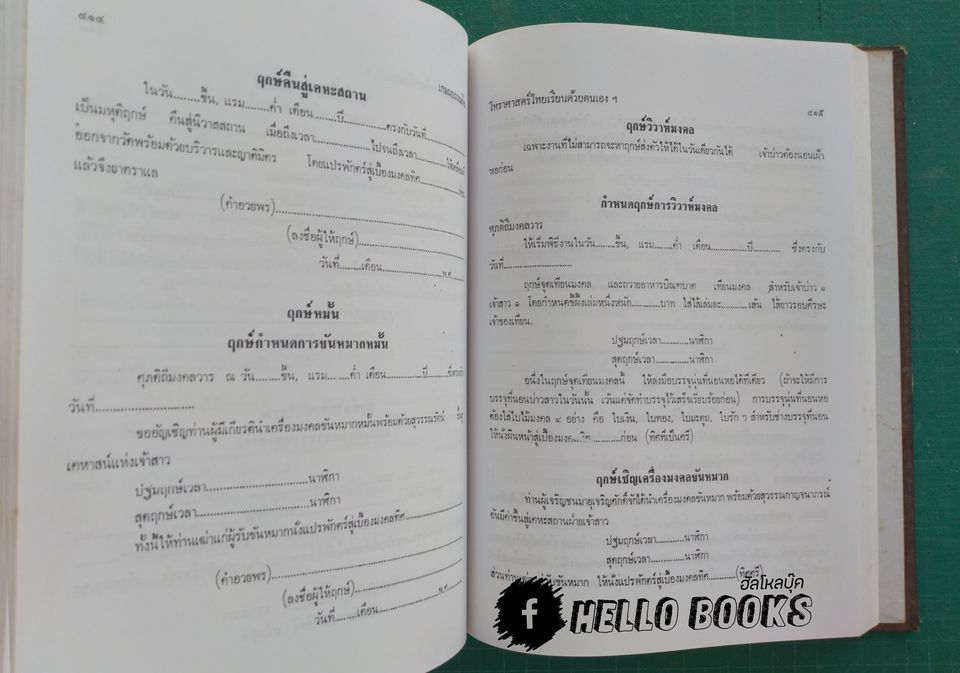 ๔๑๔
ฤกษ์คืนสู่เคหะสถาน
ในวัน........ขึ้น, แรม........ค่ำ เดือน..........ปี..............ตรงกับวันที่............
เป็นมหุติฤกษ์ คืนสู่นิวาสสถาน เมื่อถึงเวลา..............ไปจนถึงเวลา..............
ออกจากวัดพร้อมด้วยบริวารและญาติมิตร โดยแปรพักตร์สู่เบื้องมงคลทิศ..............
แล้วจึงยาตราแล
(คำอวยพร)............................................
(ลงชื่อผู้ให้ฤกษ์)............................
วันที่........เดือน..................พ.ศ.
ฤกษ์หมั้น
ฤกษ์กำหนดการขันหมากหมั้น
ศุภดิถีมงคลวาร ณ วัน........ขึ้น, แรม........ค่ำ เดือน..............ปี..........ซึ่งตรงกับ
วันที่............................
ขออัญเชิญท่านผู้มีเกียรตินำเครื่องมงคลขันหมากหมั้นพร้อมด้วยสุวรรณรัตน์ ขึ้นสู่
เคหาสน์แห่งเจ้าสาว
ปฐมฤกษ์เวลา............................นาฬิกา
สุดฤกษ์เวลา............................นาฬิกา
ทั้งนี้ให้ท่านเฒ่าแก่ผู้รับขันหมากนั่งแปรพักตร์สู่เบื้องมงคลทิศ..............
(คำอวยพร)............................................
(ลงชื่อผู้ให้ฤกษ์)............................
วันที่........เดือน..................พ.ศ.
โหราศาสตร์ไทยเรียนด้วยตนเอง ฯ
๔๑๕
ฤกษ์วิวาห์มงคล
เฉพาะงานที่ไม่สามารถจะหาฤกษ์ส่งตัวให้ได้ในวันเดียวกันได้ เจ้าบ่าวต้องนอนเฝ้า
หอก่อน
กำหนดฤกษ์การวิวาห์มงคล
ศุภดิถีมงคลวาร
ให้เริ่มพิธีงานในวัน........ขึ้น, แรม........ค่ำ เดือน............ปี.......... ซึ่งตรงกับ
วันที่....................
ฤกษ์จุดเทียนมงคล และถวายอาหารบิณฑบาต เทียนมงคล สำหรับเจ้าบ่าว ๑
เจ้าสาว ๑ โดยกำหนดขี้ผึ้งเล่มหนึ่งหนัก..........บาท ใส่ไส้เล่มละ..........เส้น ไส้ยาวรอบศีรษะ
เจ้าของเทียน.
ปฐมฤกษ์เวลา............นาฬิกา
สุดฤกษ์เวลา............นาฬิกา
อนึ่งในฤกษ์จุดเทียนมงคลนี้ ให้ลงมือบรรจุนุ่นที่นอนหอได้ทีเดียว (ถ้าจะให้มีการ
บรรจุที่นอนบ่าวสาวในวันนั้น เว้นแต่จัดทำบรรจุไว้เสร็จเรียบร้อยก่อน) การบรรจุนุ่นที่นอนหอ
ต้องใส่ใบไม้มงคล ๔ อย่าง คือ ใบเงิน, ใบทอง, ใบมะตูม, ใบรัก ฯ สำหรับช่างบรรจุที่นอน
ให้นั่งผินหน้าสู่เบื้องมงคลทิศ..........ก่อน (ทิศที่เป็นศรี)
ฤกษ์เชิญเครื่องมงคลขันหมาก
ท่านผู้เจริญชนมายุเจริญศักดิ์จักได้นำเครื่องมงคลขันหมาก พร้อมด้วยสุวรรณกาญจนาภรณ์
อันมีค่าขึ้นสู่เคหะสถานฝ่ายเจ้าสาว
ปฐมฤกษ์เวลา............นาฬิกา
สุดฤกษ์เวลา............นาฬิกา
ส่วนท่านเฒ่าแก่รับขันหมาก ให้นั่งแปรพักตร์สู่เบื้องมงคลทิศ..........(ทิศศรี)
ฮัลโหลบุ๊ค
f HELLO BOOKS